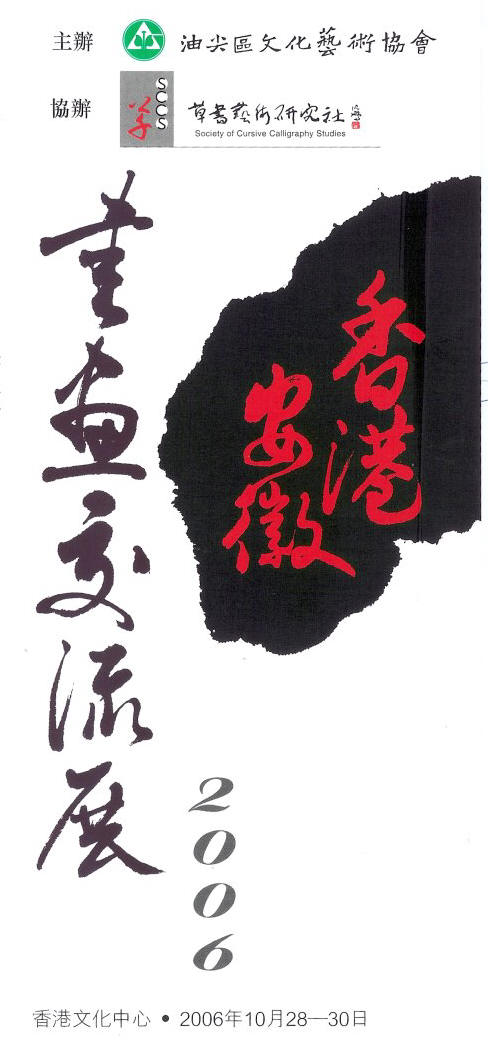 主辦 油尖區文化藝術協會
協辦 SCCS 草 草書藝術研究社
Society of Cursive Calligraphy Studies
香港
安徽
書畫交流展
2006
香港文化中心 • 2006年10月28—30日